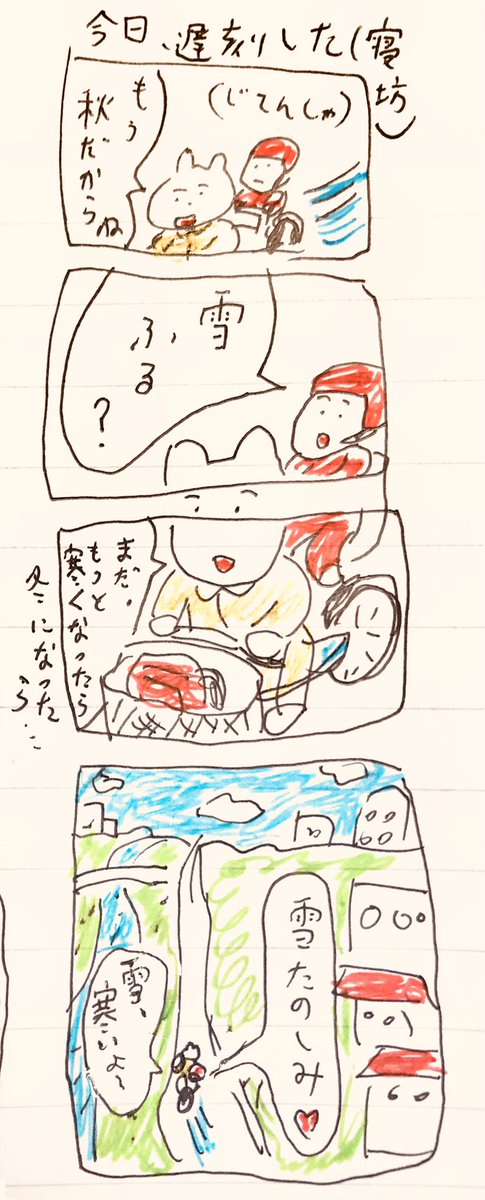 今日、遅刻した(寝坊)
(じてんしゃ)
もう
秋だからね
雪
ふる
?
まだ。
もっと
寒くなったら
冬になったら…
雪たのしみ♥
雪、
寒いよ〜